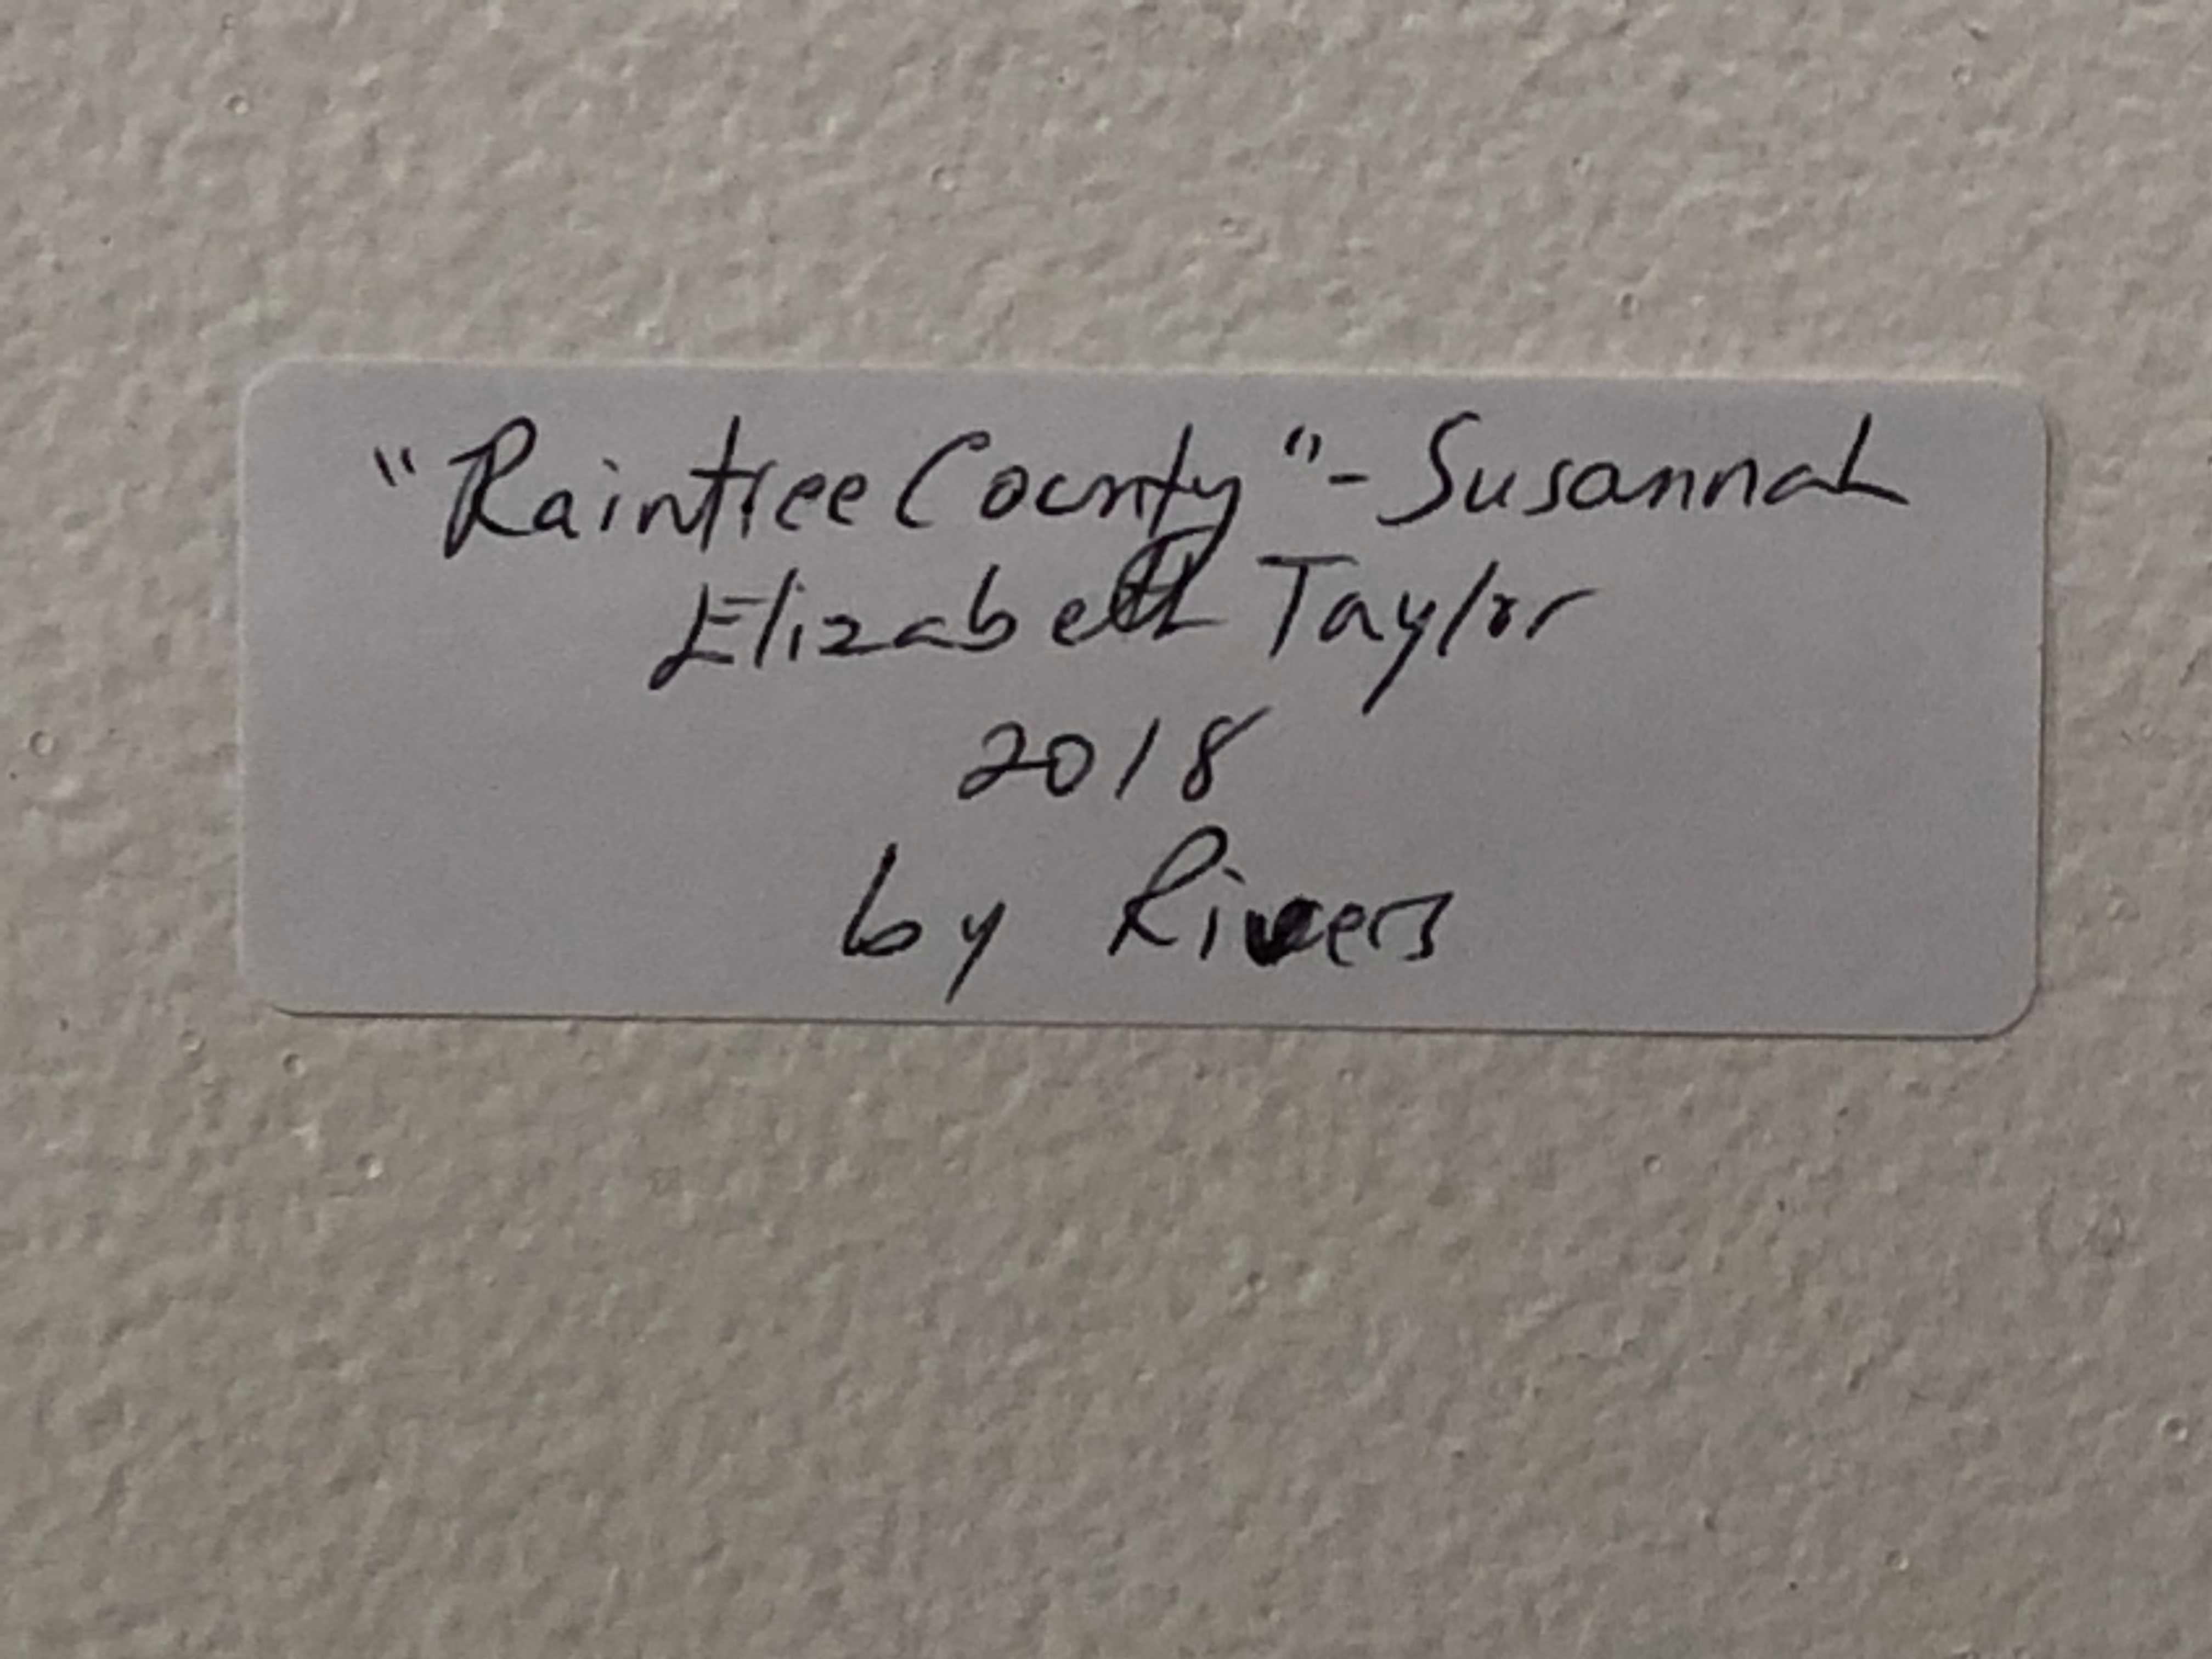 "Raintree County" - Susannah
Elizabeth Taylor
2018
by Rivers